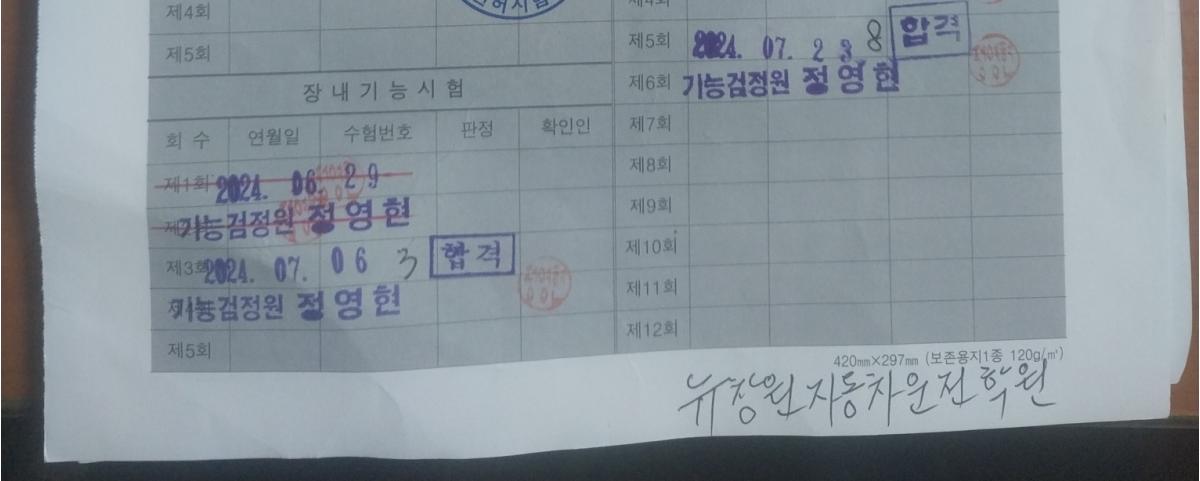 제4회
제5회
장내기능시험
회 수 연월일 수험번호 판정 확인인
제1회 2024. 06. 29
기능검정원 정영현
제3회 2024. 07. 06 3 합격
기능검정원 정영현
제5회
제4회
제5회 2024. 07. 23, 8 합격
제6회 기능검정원 정영현
제7회
제8회
제9회
제10회
제11회
제12회
420㎜×297㎜ (보존용지1종 120g/㎡)
뉴창원자동차운전학원